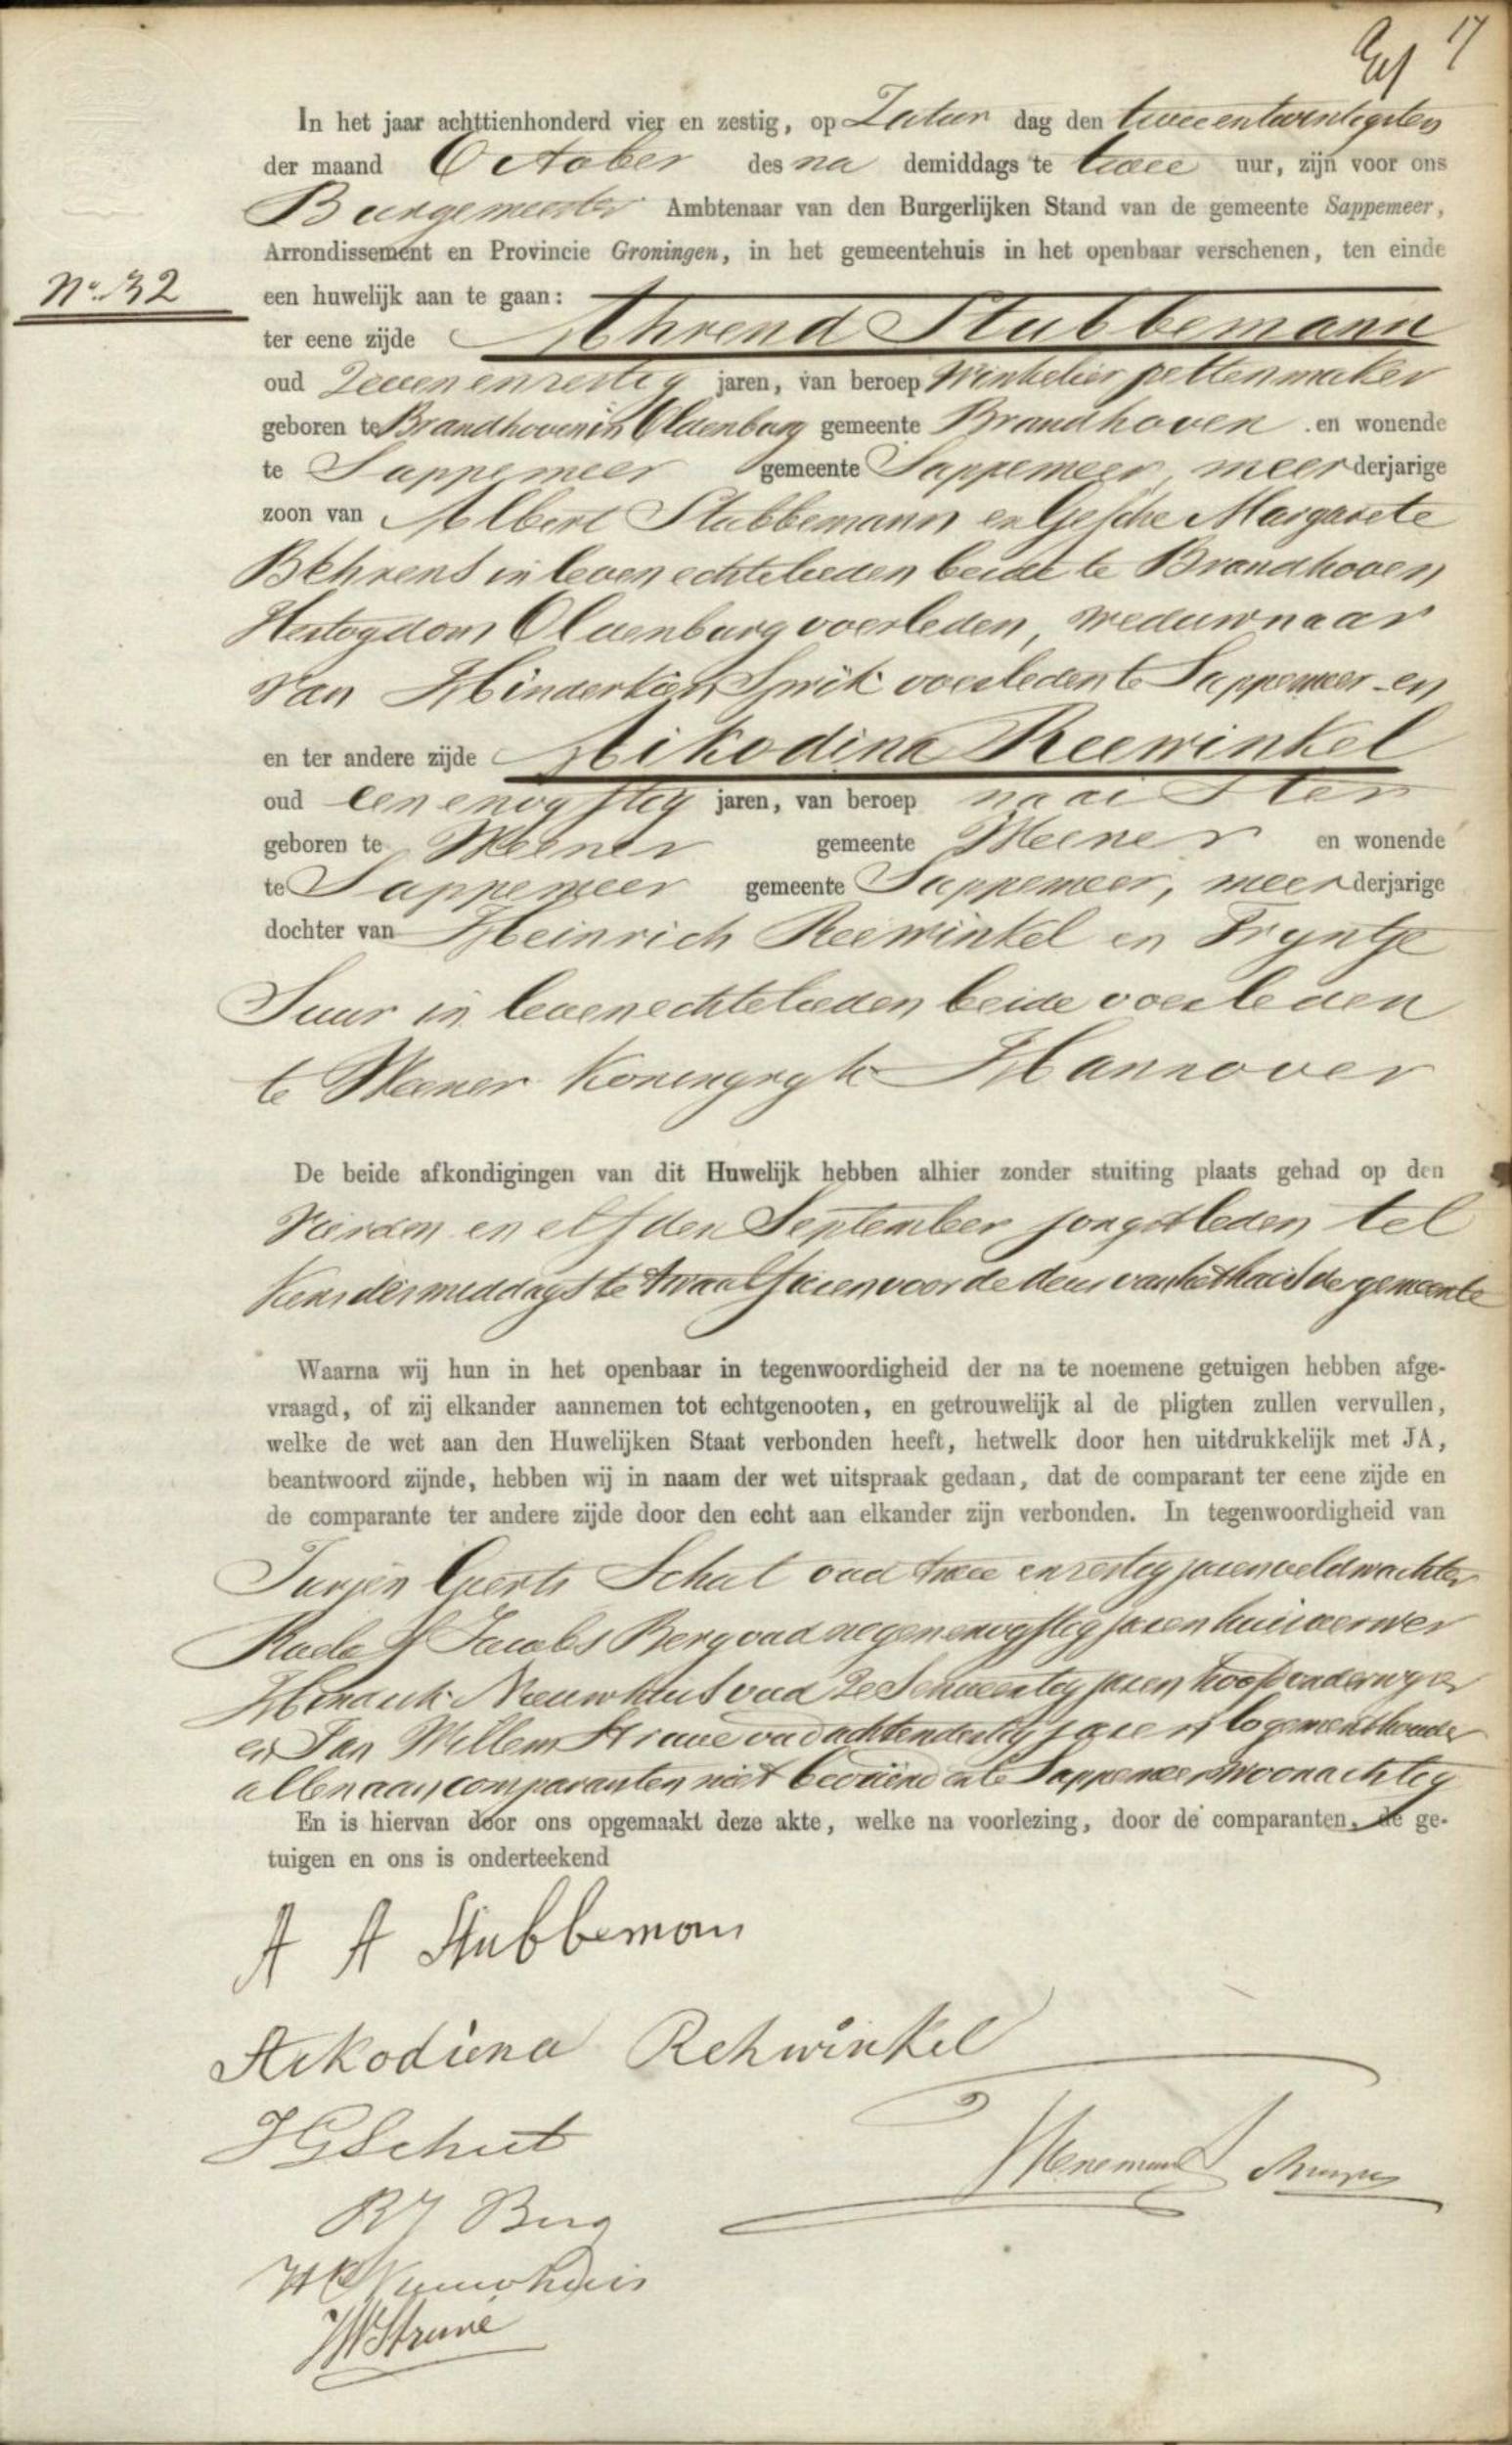 17
In het jaar achttienhonderd vier en zestig, op Zatur dag den twee en twintigsten
der maand October des na demiddags te twee uur, zijn voor ons
Burgemeester Ambtenaar van den Burgerlijken Stand van de gemeente Sappemeer,
Arrondissement en Provincie Groningen, in het gemeentehuis in het openbaar verschenen, ten einde
No. 32
een huwelijk aan te gaan:
ter eene zijde Ahrend Stubbemann
oud Zeven en zestig jaren, van beroep Winkelier pettenmaker
geboren te Brandhoven in Oldenburg gemeente Brandhoven en wonende
te Sappemeer gemeente Sappemeer, meer derjarige
zoon van Albert Stubbemann en Gesche Margarete
Behrens in leven echtelieden beide te Brandhoven
Hertogdom Oldenburg overleden, weduwnaar
van Hinderkien Sprik overleden te Sappemeer en
en ter andere zijde Aikodina Reewinkel
oud een en vyftig jaren, van beroep naaister
geboren te Weener gemeente Weener en wonende
te Sappemeer gemeente Sappemeer, meer derjarige
dochter van Heinrich Reewinkel en Tryntje
Suur in leven echtelieden beide overleden
te Weener Koningryk Hannover
De beide afkondigingen van dit Huwelijk hebben alhier zonder stuiting plaats gehad op den
vierden en elfden September jongstleden tel
kens des middags te twaalf uren voor de deur van het huis der gemeente
Waarna wij hun in het openbaar in tegenwoordigheid der na te noemene getuigen hebben afge-
vraagd, of zij elkander aannemen tot echtgenooten, en getrouwelijk al de pligten zullen vervullen,
welke de wet aan den Huwelijken Staat verbonden heeft, hetwelk door hen uitdrukkelijk met JA,
beantwoord zijnde, hebben wij in naam der wet uitspraak gedaan, dat de comparant ter eene zijde en
de comparante ter andere zijde door den echt aan elkander zijn verbonden. In tegenwoordigheid van
Jurjen Geerts Schut oud twee en zestig jaren veldwachter
Jacobs Berg oud negen en vyftig jaren huisverwer
Hindrik Nieuwhuis oud zes en twintig jaren hoofdonderwyzer
en Jan Willem Struve oud acht en dertig jaren logementhouder
allen aan comparanten niet bevriend en te Sappemeer woonachtig
En is hiervan door ons opgemaakt deze akte, welke na voorlezing, door de comparanten, de ge-
tuigen en ons is onderteekend
A A Stubbeman
Aikodiena Rehwinkel
JGSchut
RJ Berg
Nieuwhuis
JWStruve